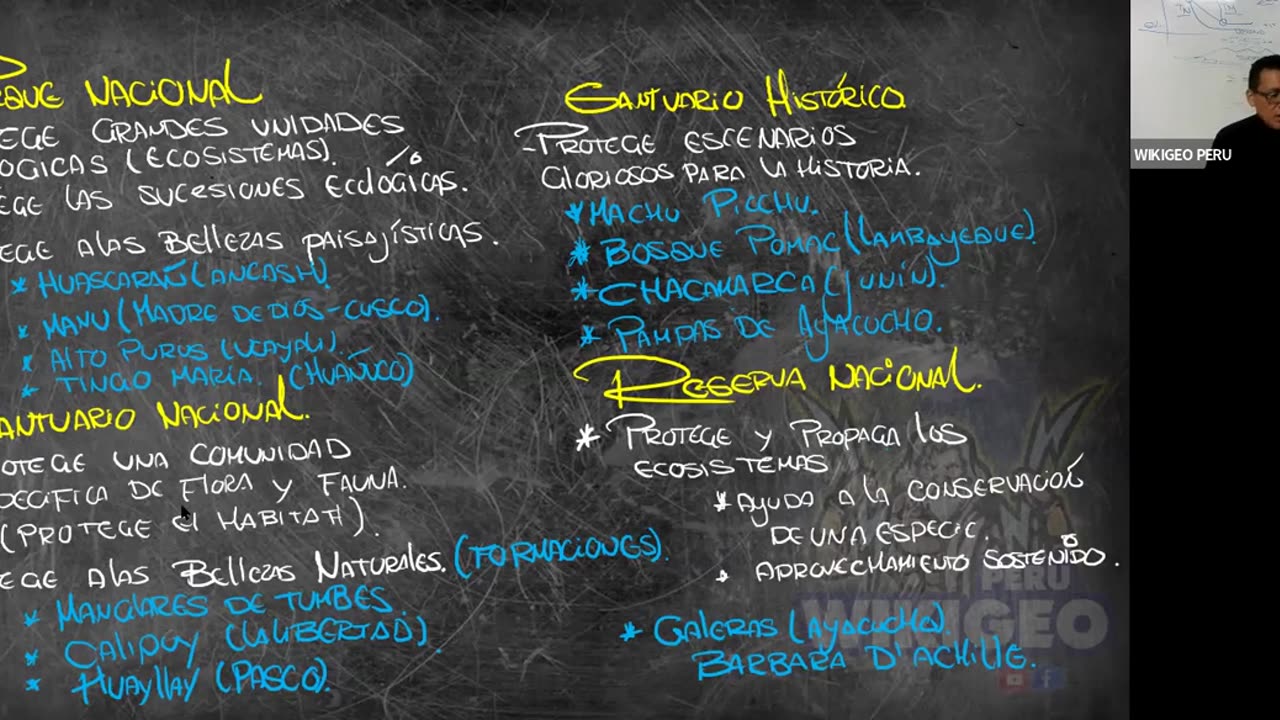 RQUE NACIONAL
EGE GRANDES UNIDADES
OGICAS (ECOSISTEMAS).
EGE LAS SUCESIONES ECOLÓGICAS.
EGE A LAS BELLEZAS PAISAJÍSTICAS.
* HUASCARÁN (ANCASH).
* MANU (MADRE DE DIOS-CUSCO).
* ALTO PURUS (UCAYALI).
* TINGO MARÍA. (HUÁNUCO)
ANTUARIO NACIONAL.
OTEGE UNA COMUNIDAD
PECIFICA DE FLORA Y FAUNA.
(PROTEGE El HABITAT).
EGE A LAS BELLEZAS NATURALES. (FORMACIONES).
* MANGLARES DE TUMBES.
* CALIPUY (LA LIBERTAD).
* HUAYLLAY (PASCO).
SANTUARIO HISTÓRICO
- PROTEGE ESCENARIOS
GLORIOSOS PARA LA HISTORIA.
* MACHU PICCHU.
* BOSQUE POMAC (LAMBAYEQUE).
* CHACAMARCA (JUNÍN).
* PAMPAS DE AYACUCHO.
RESERVA NACIONAL.
* PROTEGE Y PROPAGA LOS
ECOSISTEMAS
* AYUDA A LA CONSERVACIÓN
DE UNA ESPECIE.
• APROVECHAMIENTO SOSTENIDO.
* GALERAS (AYACUCHO).
BARBARA D'ACHILLE.
PERU
WIKIGEO
WIKIGEO PERU